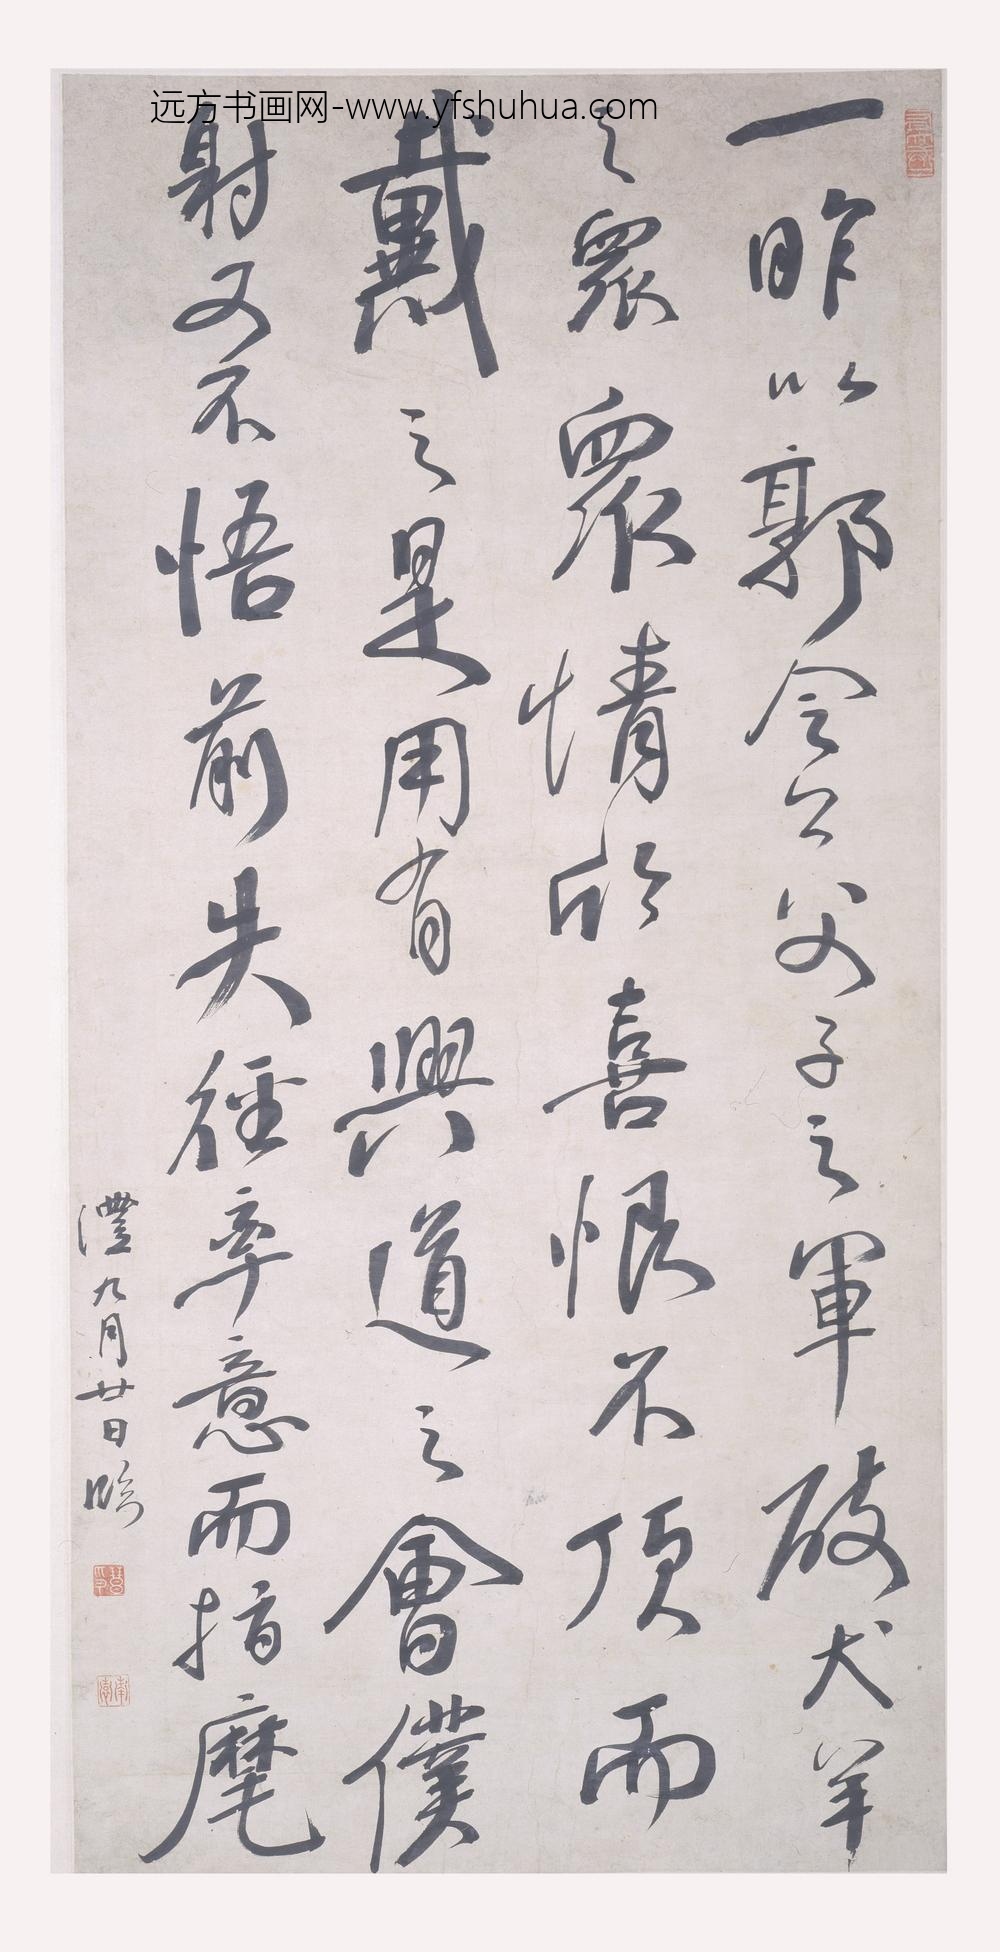 远方书画网-www.yfshuhua.com
一昨以郭令公父子之軍破犬羊
之衆衆情欣喜恨不頂而
戴之是用有興道之會僕
射又不悟前失徑率意而指麾
澧九月廿日臨